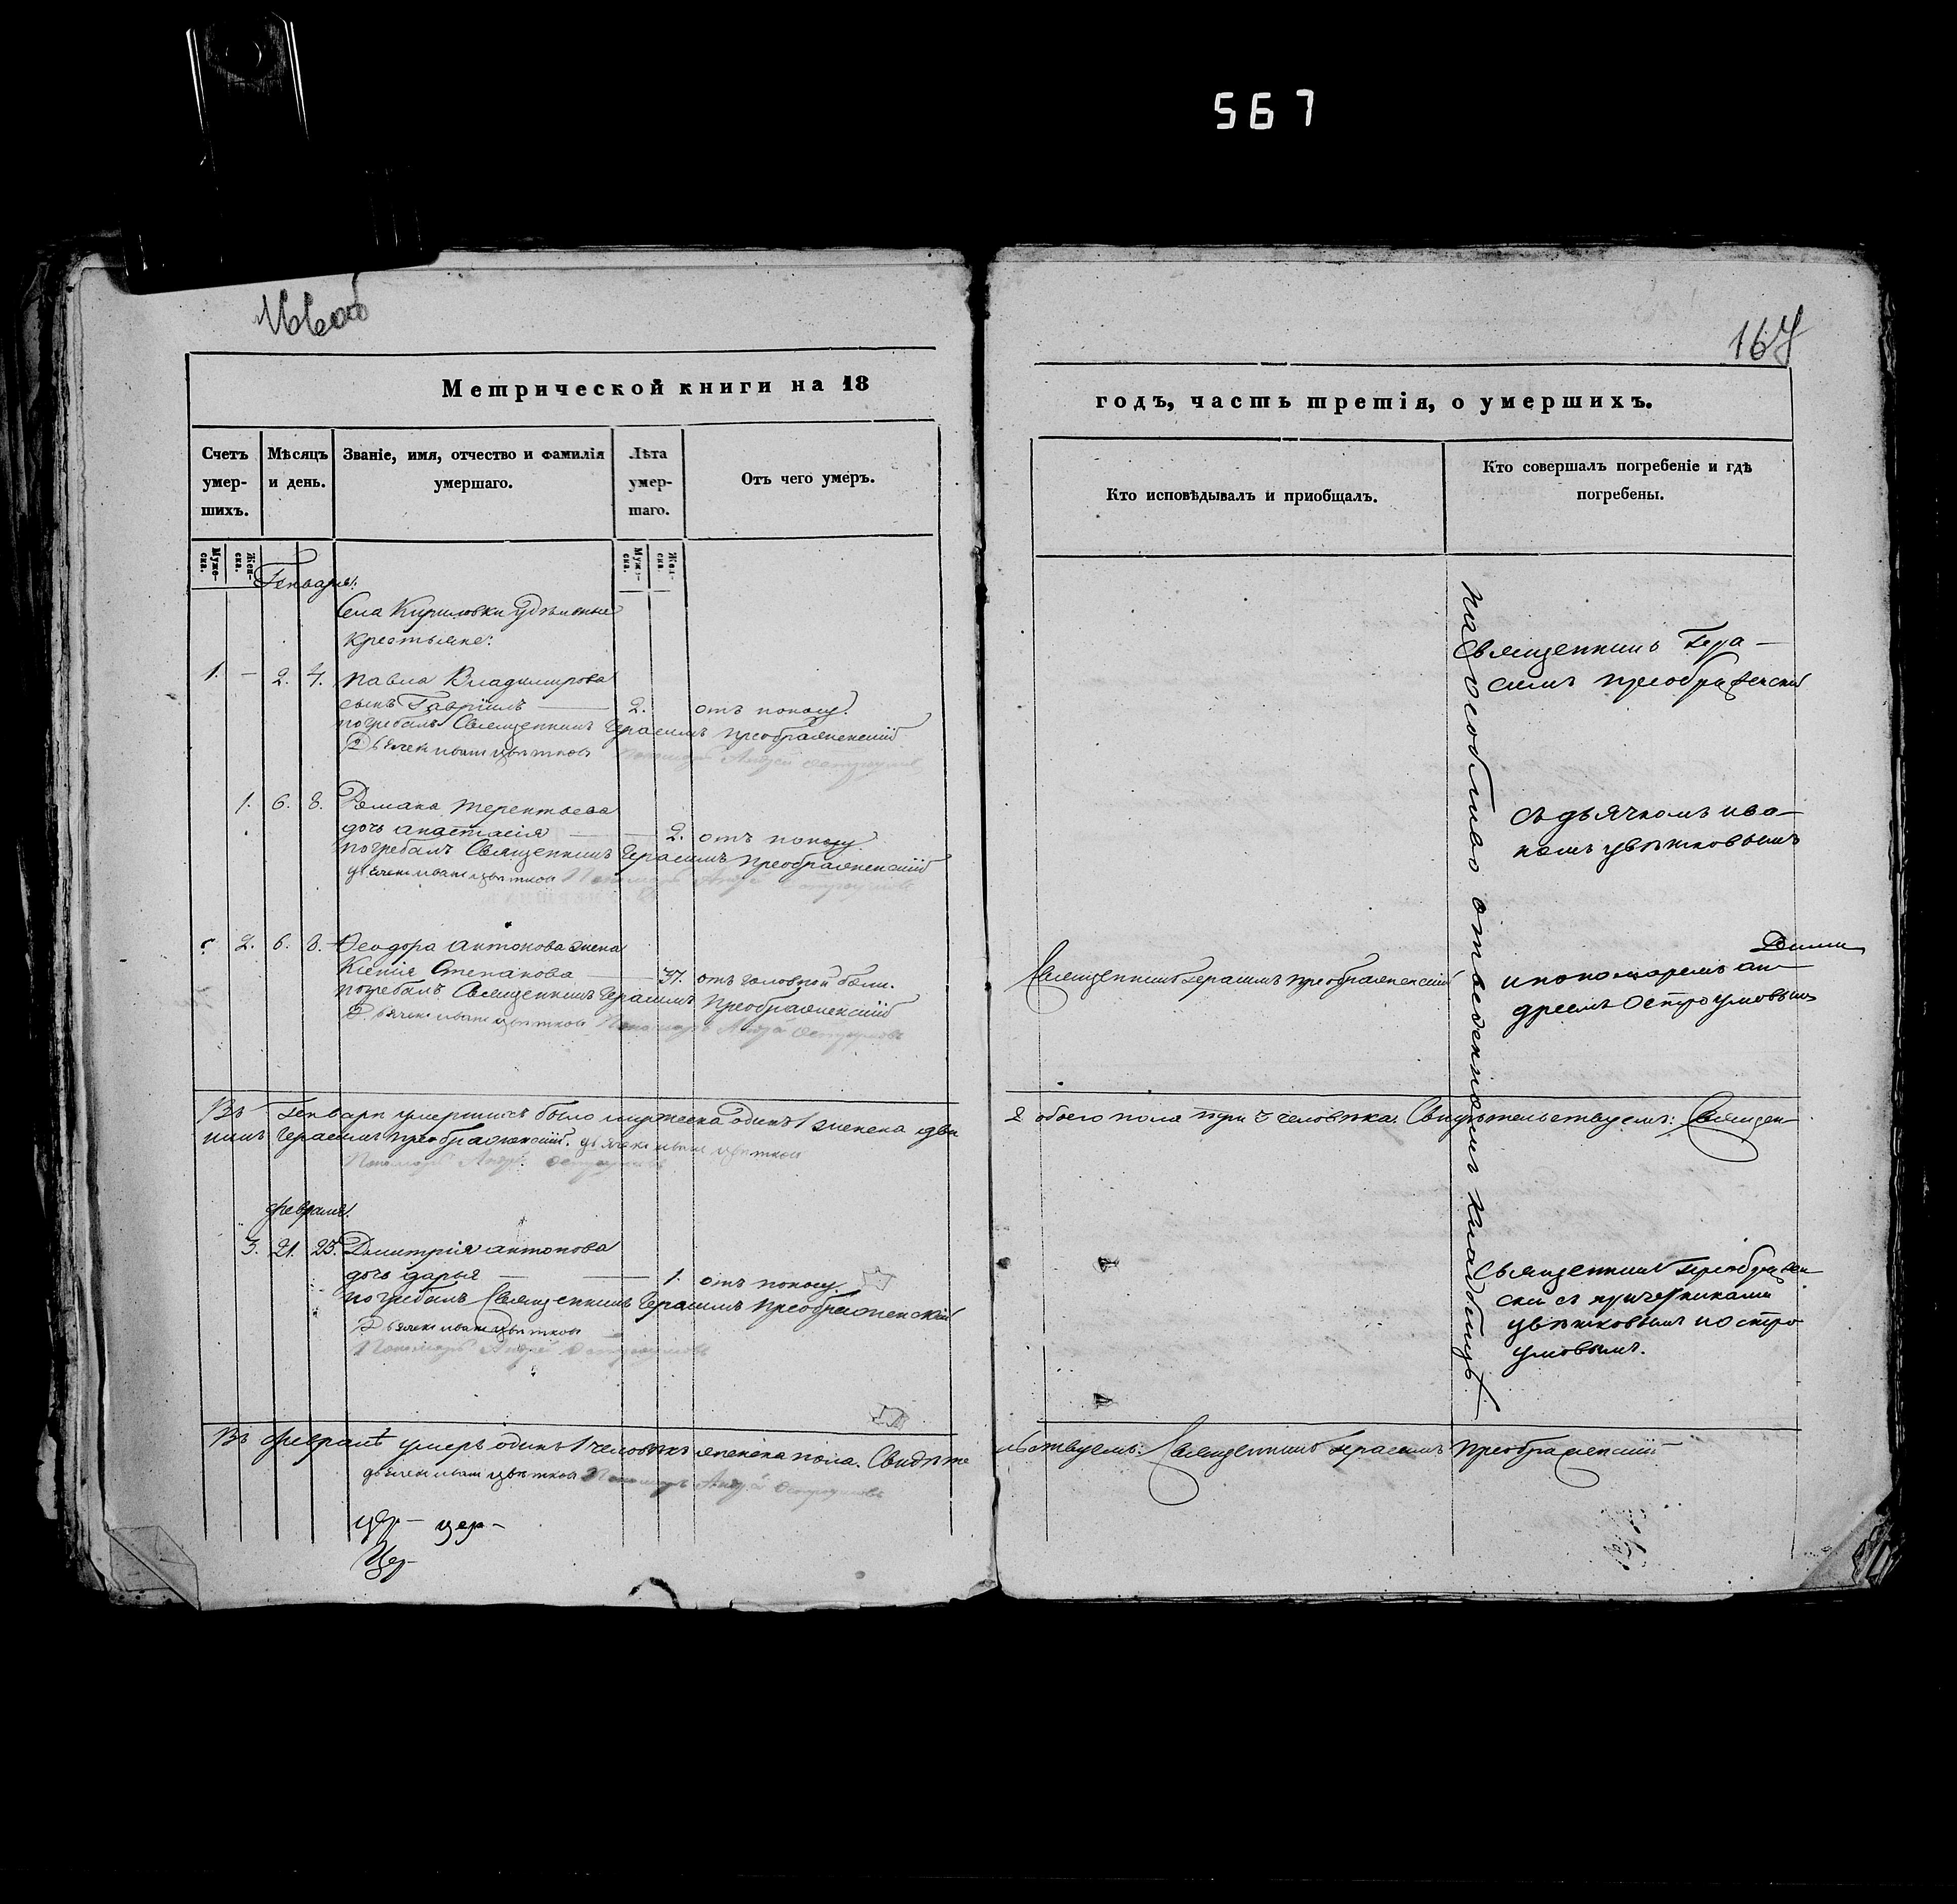 567
166об
Метрической книги на 18
Счетъ умер-шихъ.
Мѣсяцъ и день.
Званіе, имя, отчество и фамилія умершаго.
Лѣта умер-шаго.
Отъ чего умеръ.
Муже-ска.
Жен-ска.
Муже-ска.
Жен-ска.
Генварь.
Села Кириловки удѣльные
крестьяне:
1. — 2. 4. Павла Владимирова
сынъ Гавріилъ — 2. отъ поносу.
погребалъ Священникъ Герасимъ Преображенскій
Дьячекъ Иванъ Цвѣтковъ Пономарь Андрей Остроумовъ
1. 6. 8. Романа Терентьева
дочь Анастасія — 2. отъ поносу
погребалъ Священникъ Герасимъ Преображенскій
дьячекъ Иванъ Цвѣтковъ Пономарь Андрей Остроумовъ
2. 6. 8. Феодора Антонова жена
Ксенія Степанова — 37. отъ головной боли.
погребалъ Священникъ Герасимъ Преображенскій
Дьячекъ Иванъ Цвѣтковъ Пономарь Андрей Остроумовъ
Въ Генварѣ умершихъ было мужеска одинъ 1 женска два
никъ Герасимъ Преображенскій. дьячекъ Иванъ Цвѣтковъ
Пономарь Андрей Остроумовъ
Февраля.
3. 21. 23. Димитрія Антонова
дочь Дарья — 1. отъ поносу.
погребалъ Священникъ Герасимъ Преображенскій
Дьячекъ Иванъ Цвѣтковъ
Пономарь Андрей Остроумовъ
Въ Февралѣ умеръ одинъ 1 человѣкъ женска пола. Свидѣте
дьячекъ Иванъ Цвѣтковъ Пономарь Андрей Остроумовъ
цер— цер—
Цер—
167
годъ, часть третія, о умершихъ.
Кто исповѣдывалъ и приобщалъ.
Кто совершалъ погребеніе и гдѣ погребены.
Священникъ Гера—
симъ Преображенскій
съ дьячкомъ Ива—
номъ Цвѣтковымъ
Священникъ Герасимъ Преображенскій
и пономаремъ Ан—
дреемъ Остроумовымъ
На особливо отведенномъ кладбищѣ.
2 обоего пола три 3 человѣка. Свидѣтельствуемъ: Священ—
Священникъ Преображен—
скій съ причетниками
Цвѣтковымъ и Остро
умовымъ.
льствуемъ: Священникъ Герасимъ Преображенскій